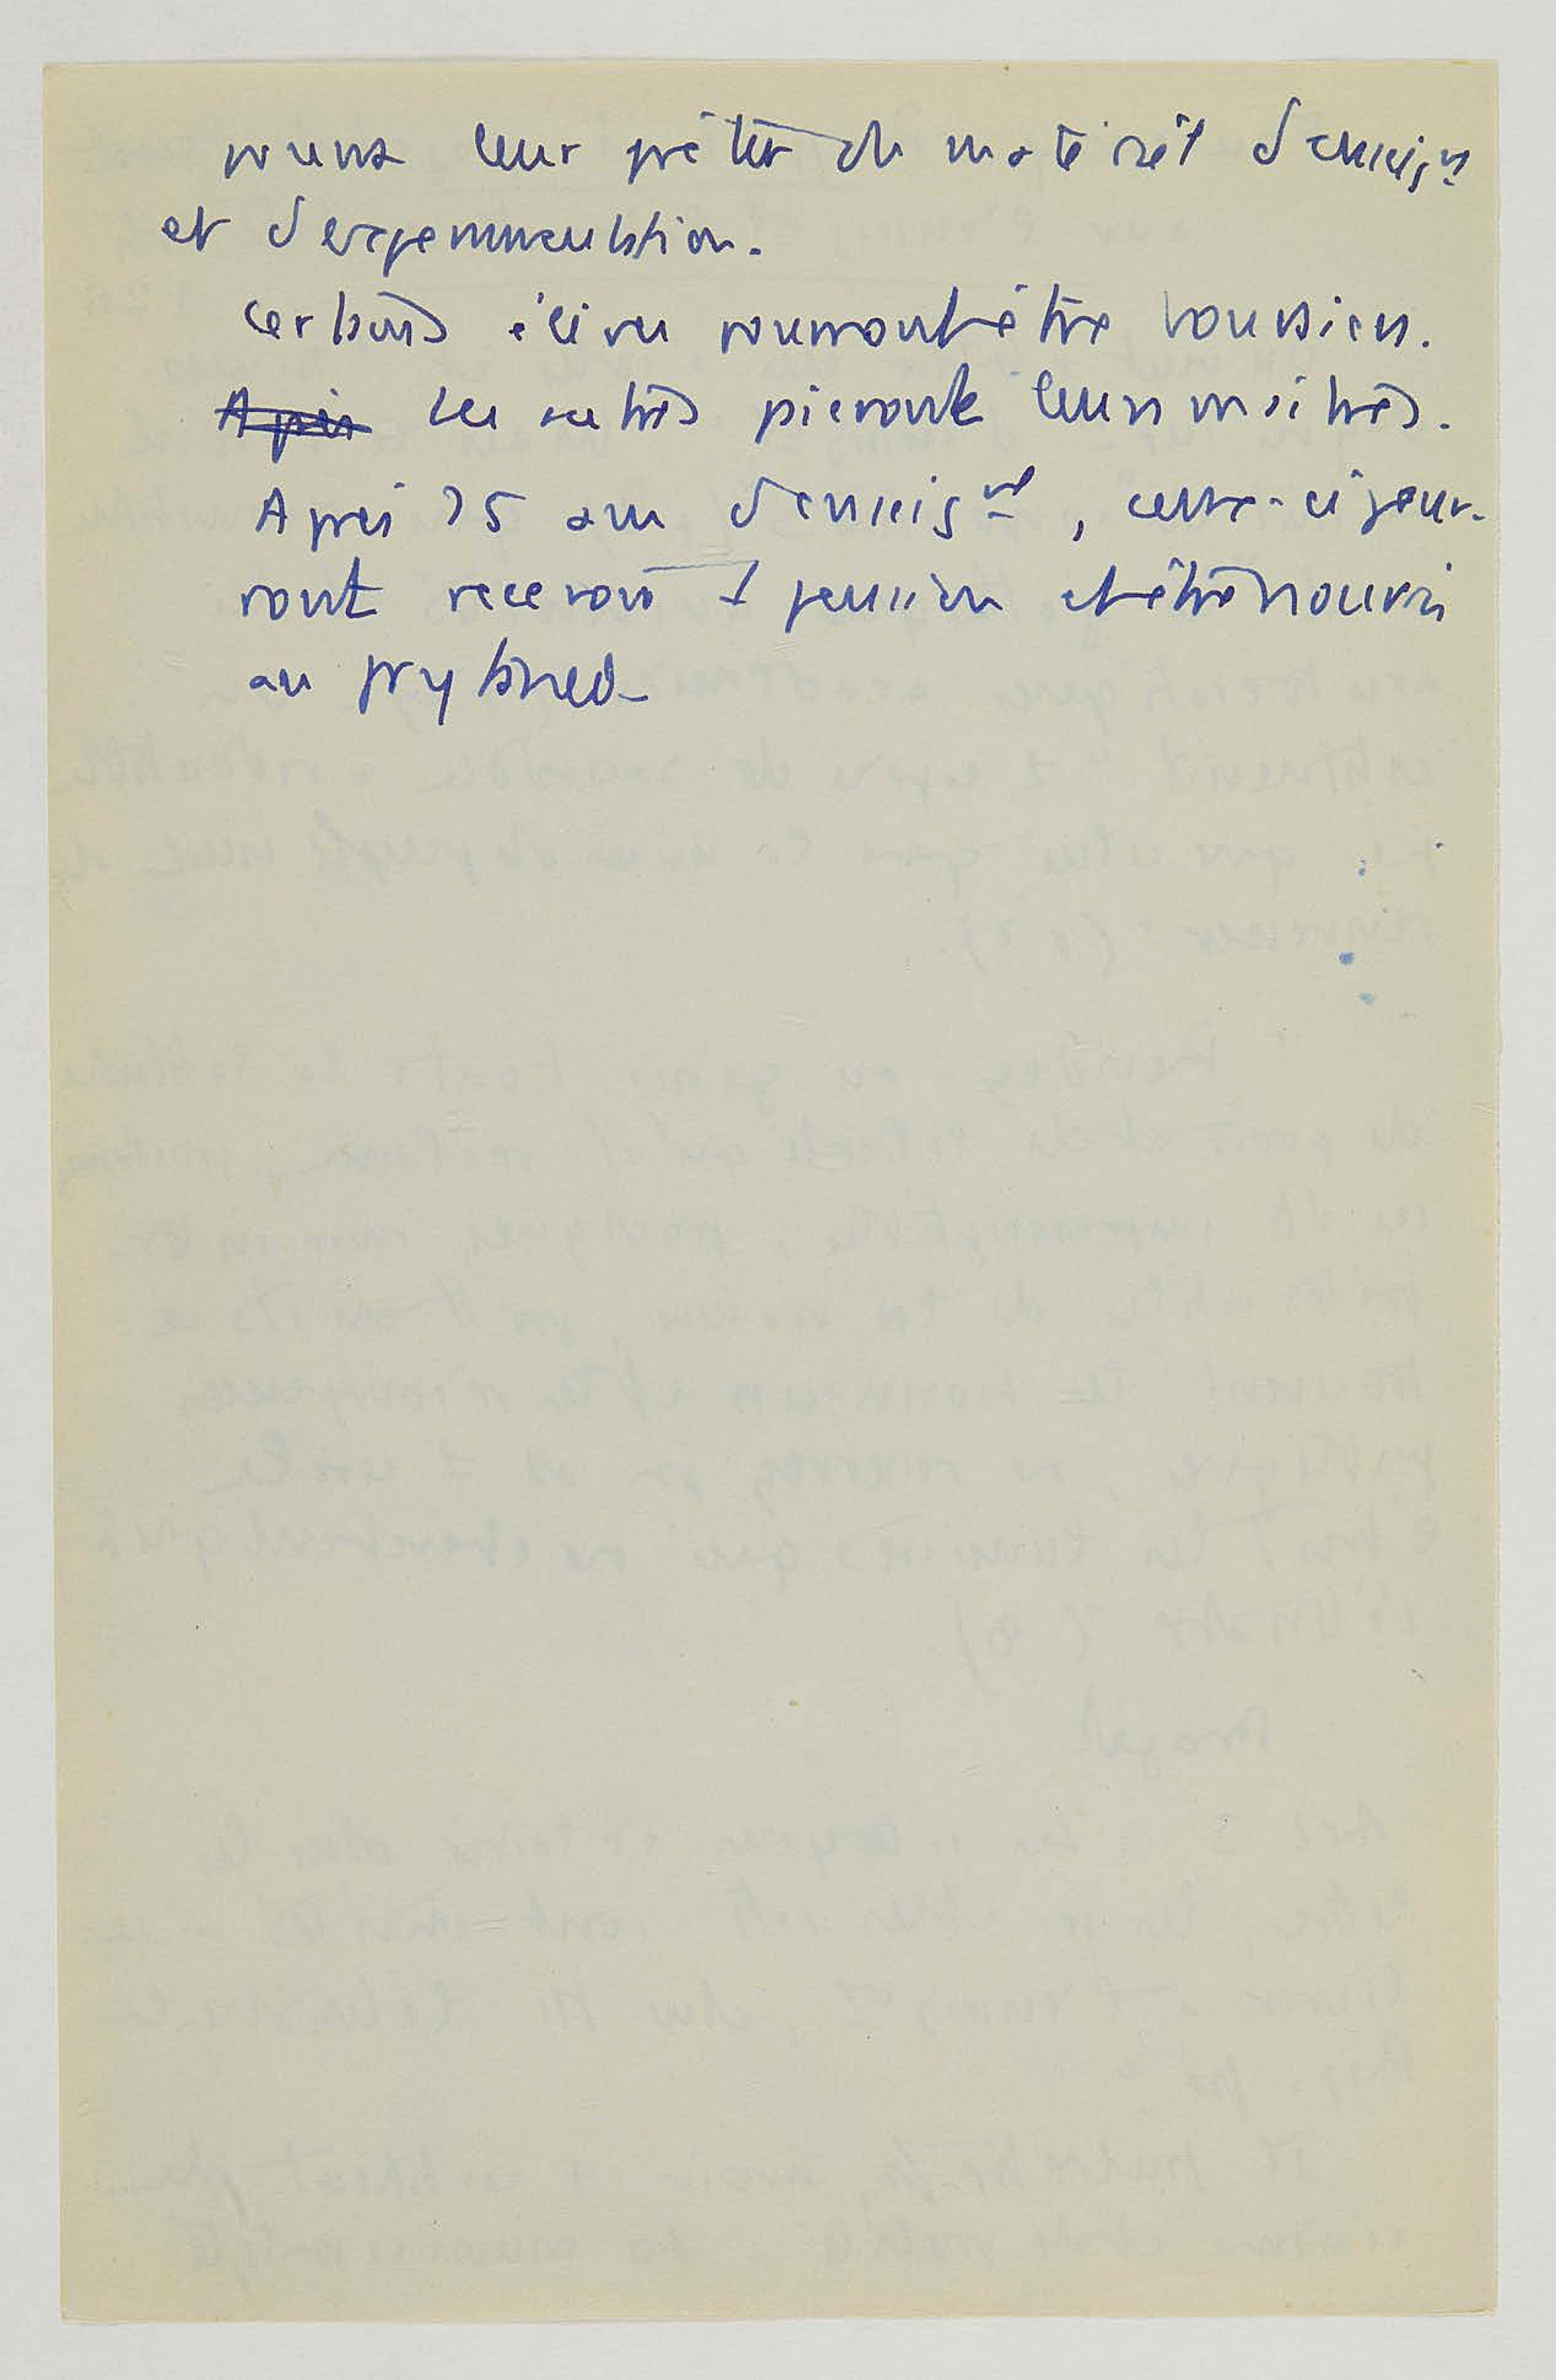 pourra leur prêter du matériel d'enseignt
et d'expérimentation.
Certains élèves pourront être boursiers.
Après Les autres paieront leurs maîtres.
Après 25 ans d'enseignt, ceux-ci pour-
ront recevoir 1 pension et être nourris
au prytanée